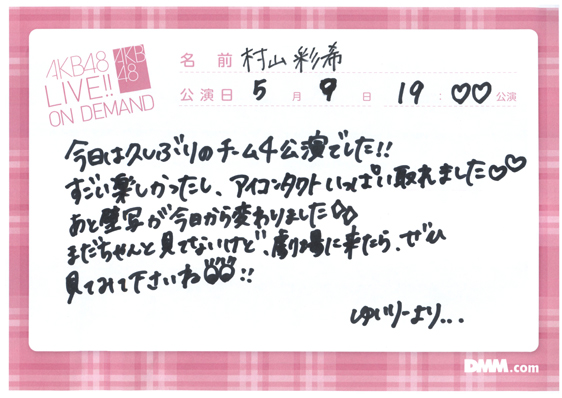 AKB48
LIVE!!
ON DEMAND
AKB
48
名前 村山彩希
公演日 5月9日 19:♡♡公演
今日は久しぶりのチーム4公演でした!!
すごい楽しかったし、アイコンタクトいっぱい取れました♡♡
あと壁写が今日から変わりました◇◇
まだちゃんと見てないけど、劇場に来たら、ぜひ
見てみて下さいね!!
ゆいりーより...
DMM.com